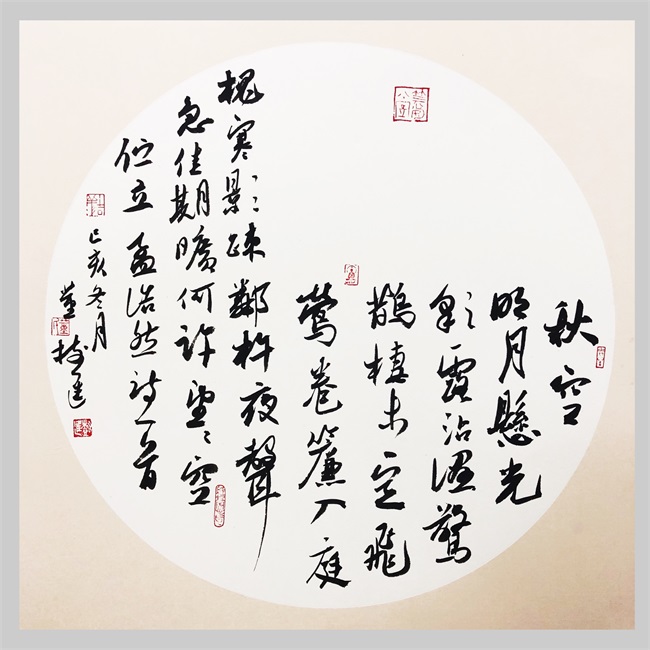 秋空
明月懸光
彩露沾濕驚
鵲棲未定飛
鶯卷簾入庭
槐寒影疎鄰杵夜聲
急佳期曠何許望〻空
伫立 孟浩然詩一首
己亥冬月
董